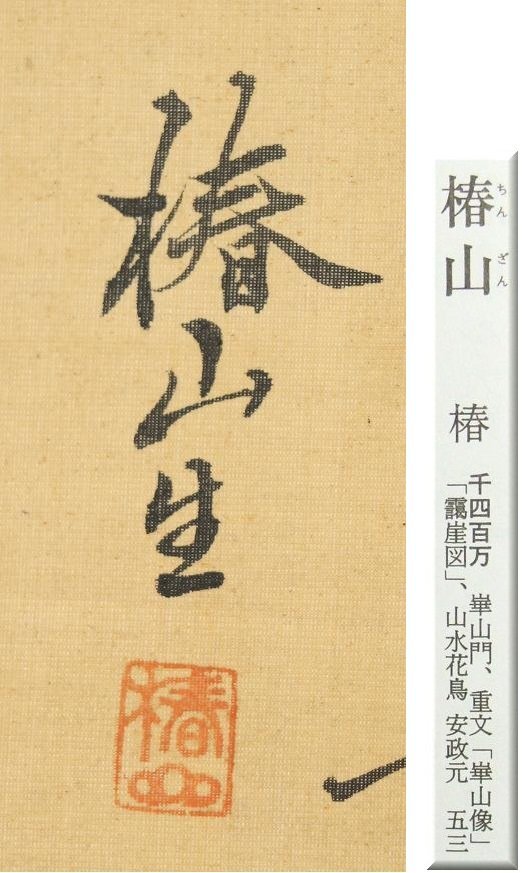 椿山生
椿山
椿山
ちんざん
椿
千四百万 崋山門、重文「崋山像」
「靄崖図」、山水花鳥 安政元 五三